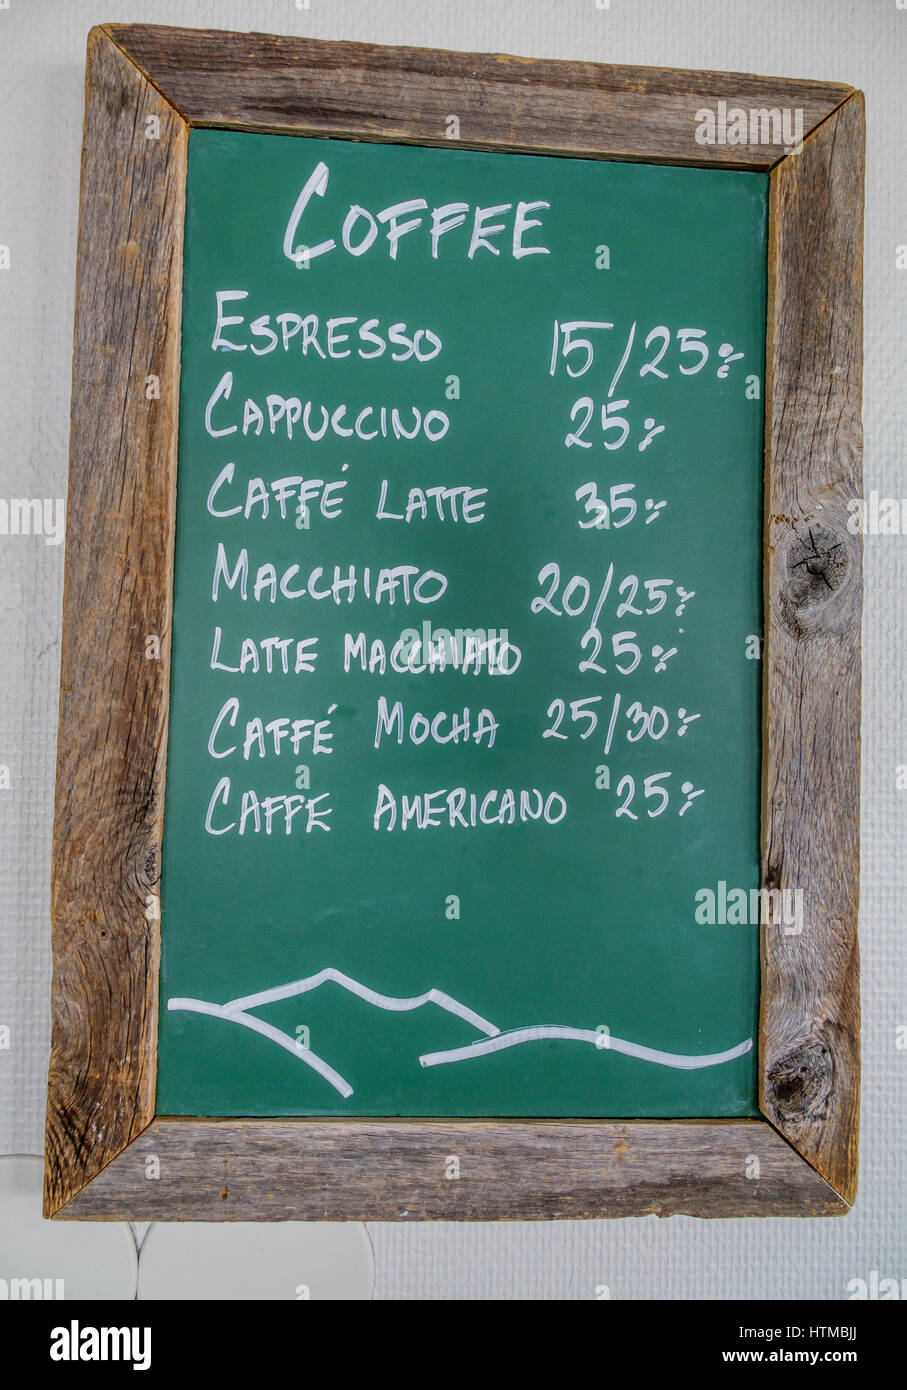 COFFEE
ESPRESSO 15/25:-
CAPPUCCINO 25:-
CAFFÉ LATTE 35:-
MACCHIATO 20/25:-
LATTE MACCHIATO 25:-
CAFFÉ MOCHA 25/30:-
CAFFE AMERICANO 25:-
alamy
alamy
Image ID: HTMBJJ
www.alamy.com